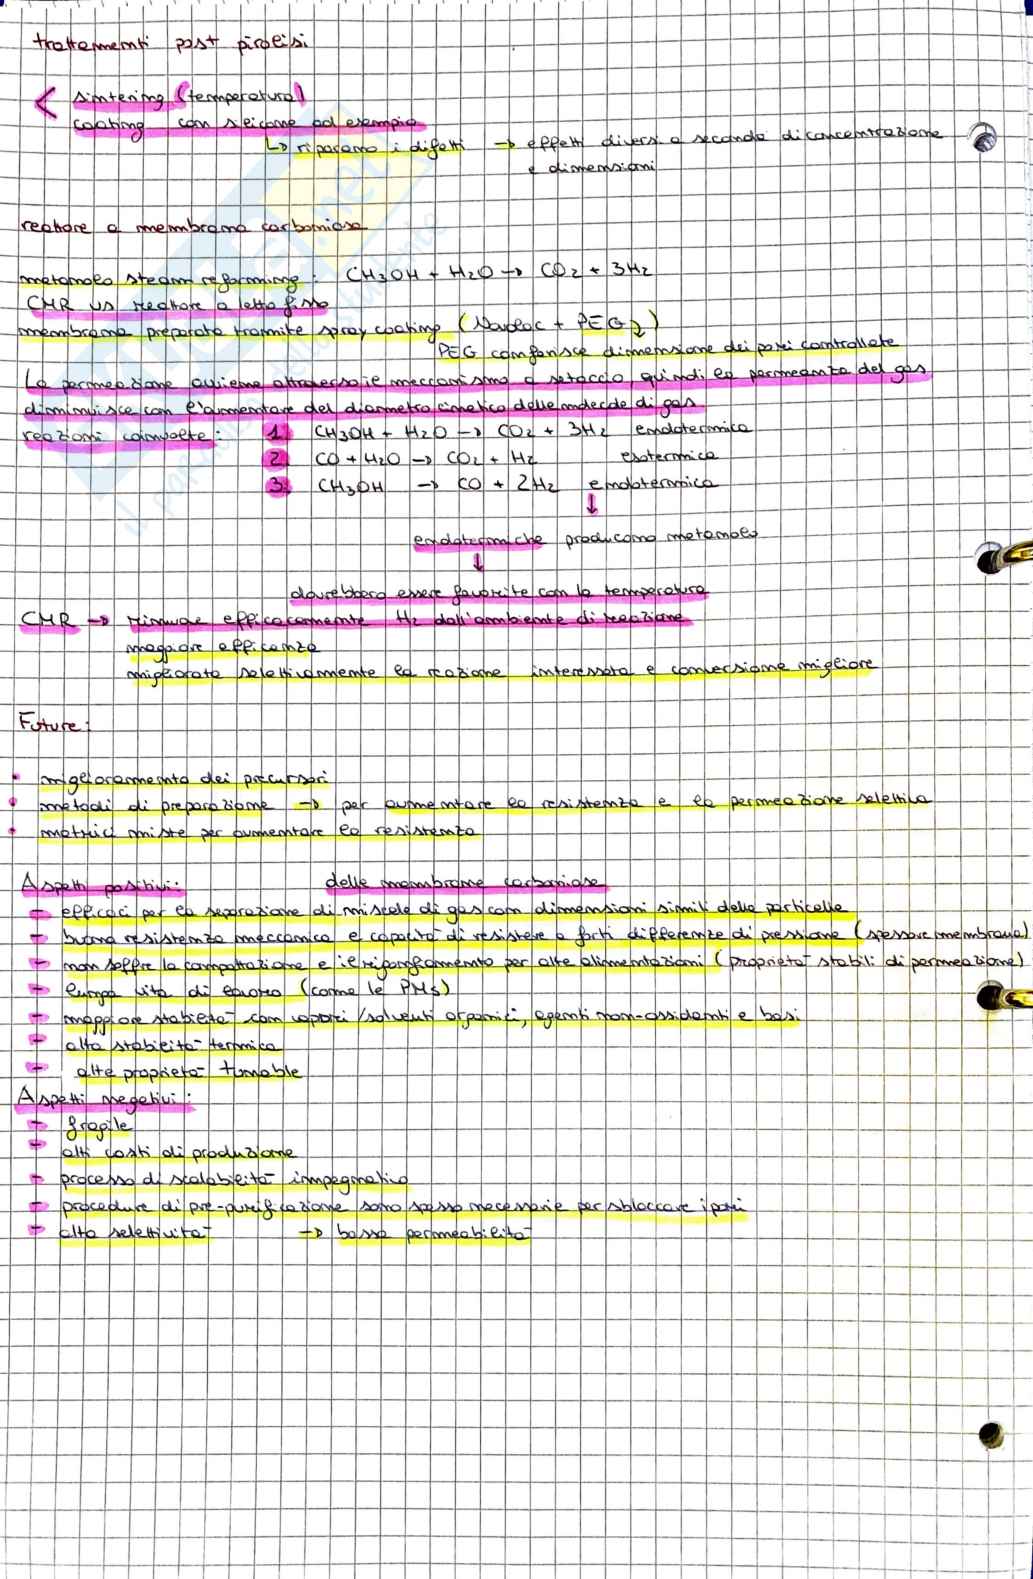 trattamenti post pirolisi
< sintering (temperatura)
coating con silicone ad esempio
↳ riparano i difetti → effetti diversi a seconda di concentrazione
e dimensioni
reattore a membrana carboniosa
metanolo steam reforming: CH3OH + H2O → CO2 + 3H2
CMR vs reattore a letto fisso
membrana preparata tramite spray coating (Novolac + PEG)
PEG conferisce dimensione dei pori controllate
La permeazione avviene attraverso il meccanismo a setaccio, quindi la permeanza del gas
diminuisce con l'aumentare del diametro cinetico delle molecole di gas
reazioni coinvolte: 1. CH3OH + H2O → CO2 + 3H2 endotermica
2. CO + H2O → CO2 + H2 esotermica
3. CH3OH → CO + 2H2 endotermica
↓
endotermiche producono metanolo
↓
dovrebbero essere favorite con la temperatura
CMR → rimuove efficacemente H2 dall'ambiente di reazione
maggiore efficienza
migliorata selettivamente la reazione interessata e conversione migliore
Future:
• miglioramento dei precursori
• metodi di preparazione → per aumentare la resistenza e la permeazione selettiva
• matrici miste per aumentare la resistenza
Aspetti positivi: delle membrane carboniose
- efficaci per la separazione di miscele di gas con dimensioni simili delle particelle
- buona resistenza meccanica e capacità di resistere a forti differenze di pressione (spessore membrana)
- non soffre la compattazione e il rigonfiamento per alte alimentazioni (proprietà stabili di permeazione)
- lunga vita di lavoro (come le PMs)
- maggiore stabilità con vapori/solventi organici, agenti non-ossidanti e basi
- alta stabilità termica
- alte proprietà tunable
Aspetti negativi:
- fragile
- alti costi di produzione
- processo di scalabilità impegnativo
- procedure di pre-purificazione sono spesso necessarie per sbloccare i pori
- alta selettività → bassa permeabilità